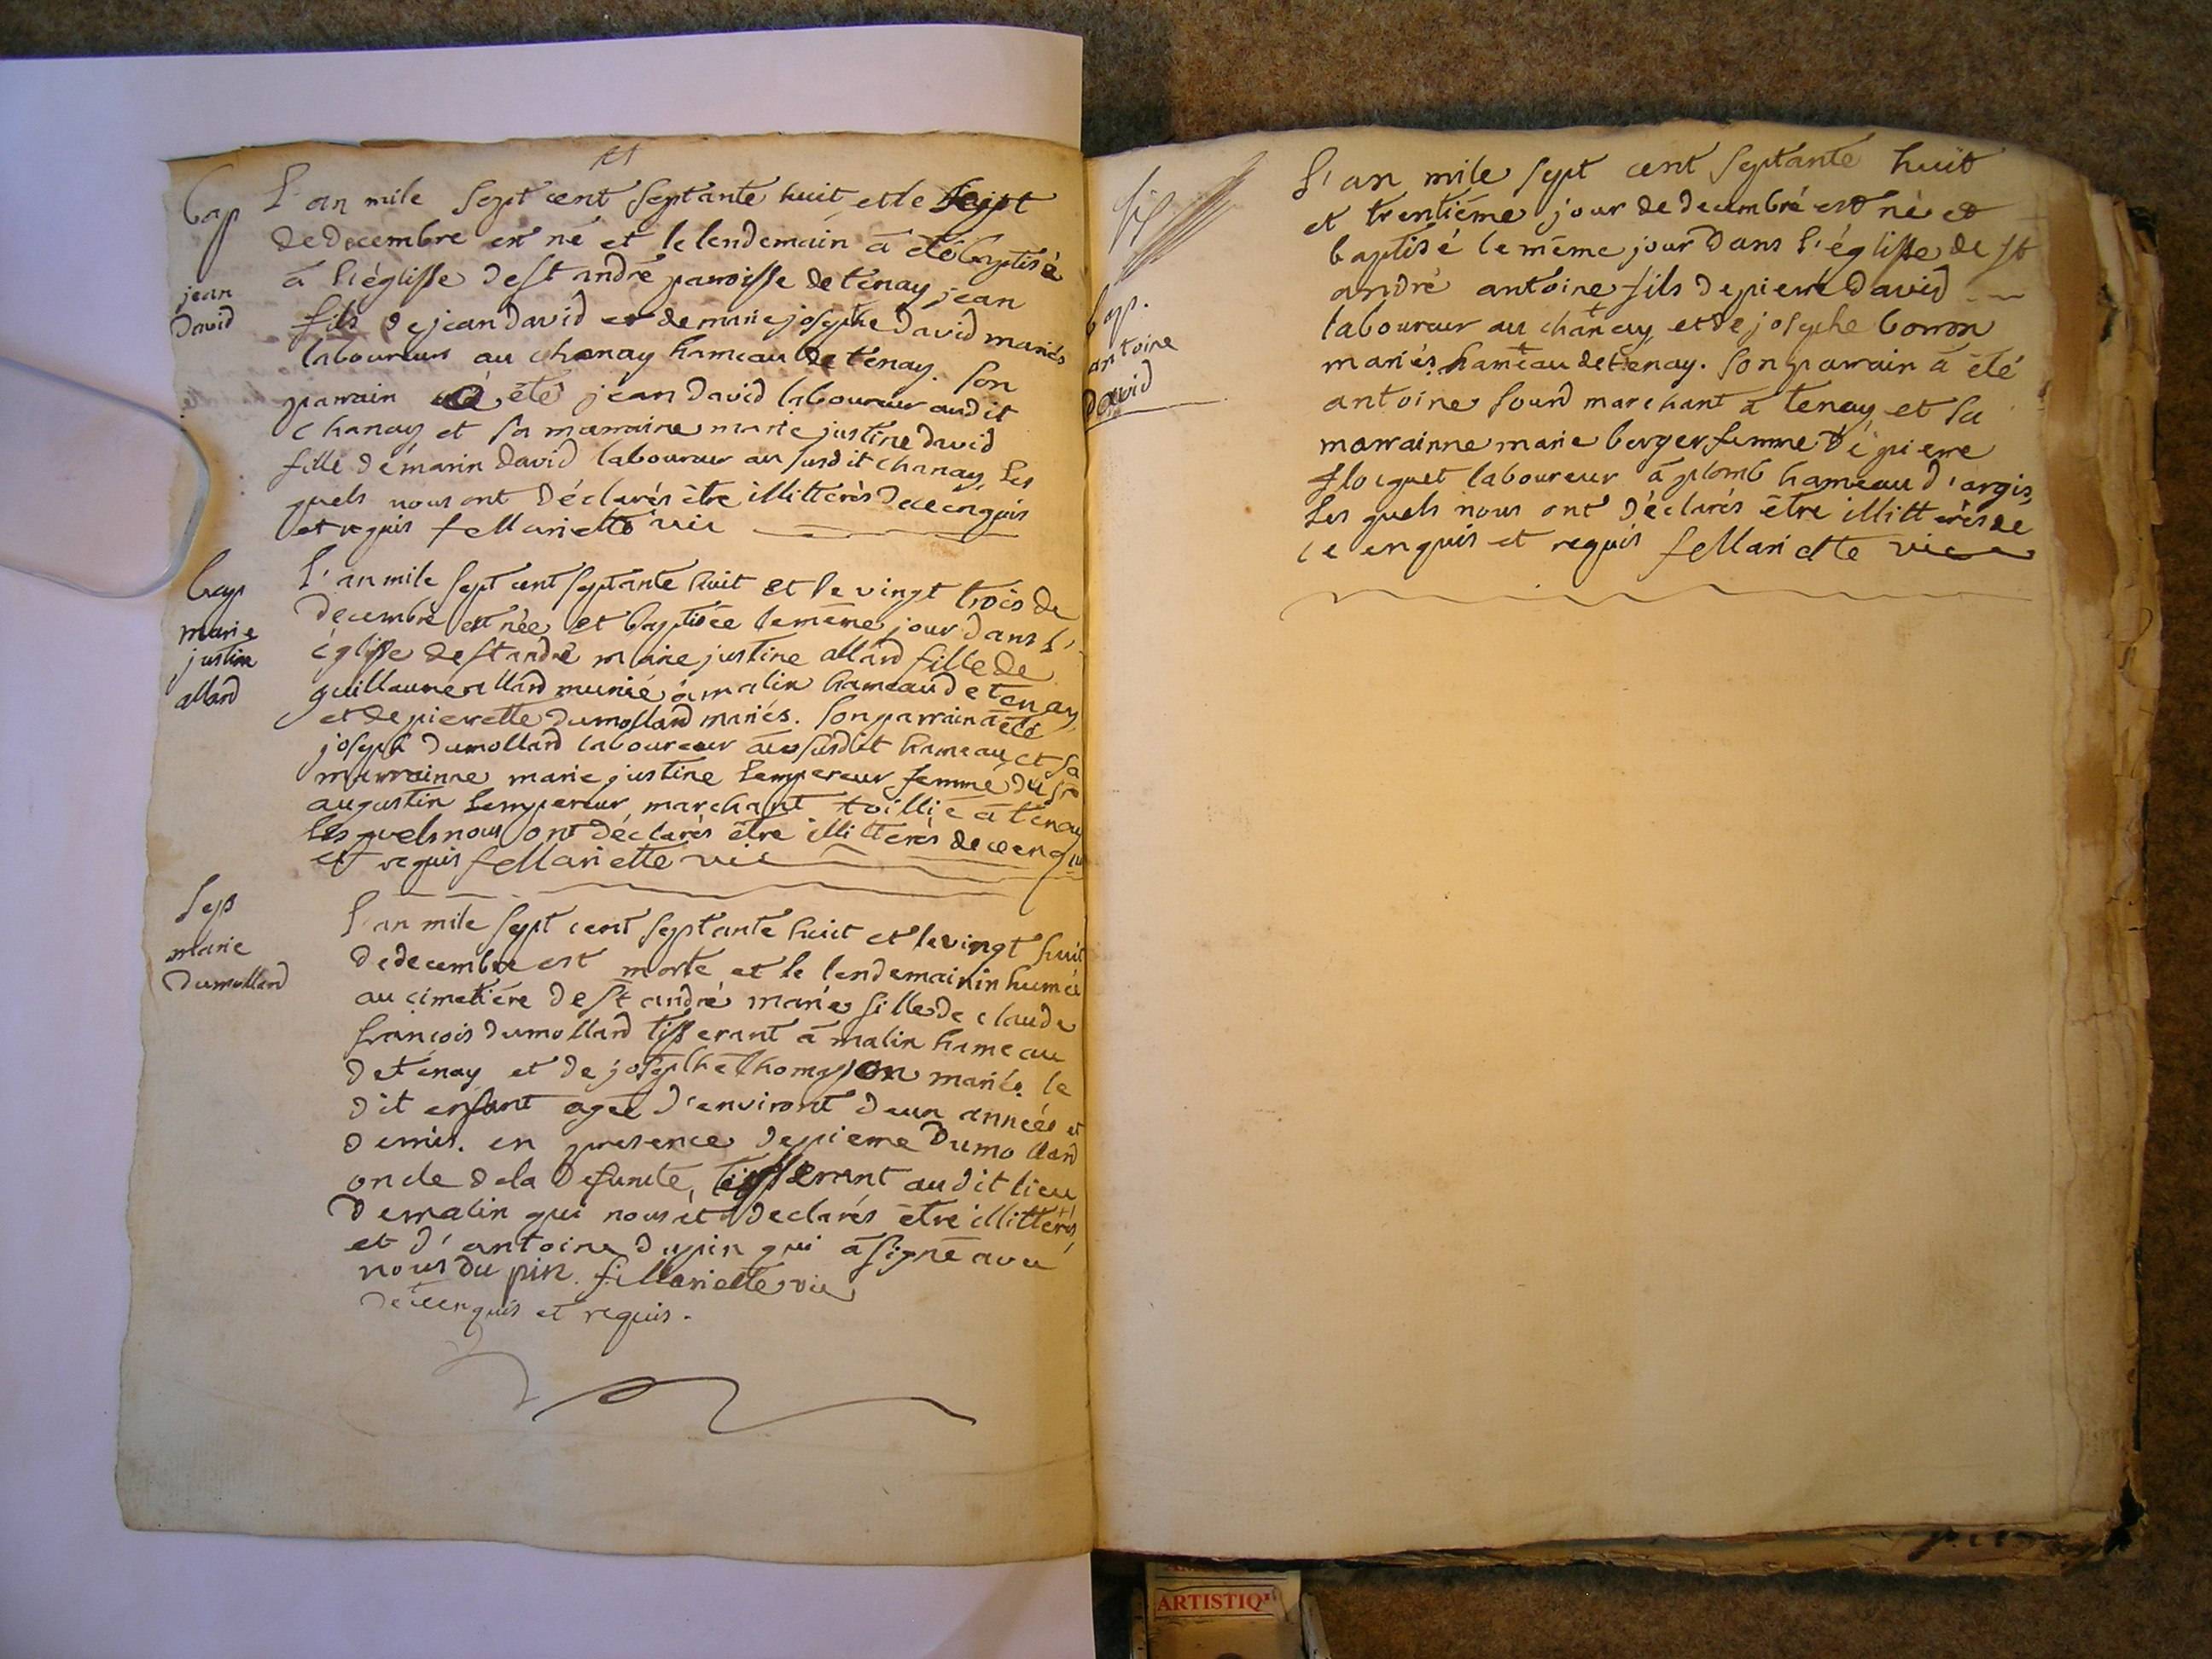 Bap
jean
David
L'an mile sept cent septante huit et le sept
de decembre est né et le lendemain à été baptisé
à l'églisse de st andré paroisse de tenay jean
fils de jean david et de marie josephe david mariés
laboureurs au chanay hameau de tenay. son
parrain à été jean david laboureur audit
chanay et sa marraine marie justine david
fille dé marin david laboureur au susdit chanay, les
quels nous ont déclarés être illitterés de ce enquis
et requis f Mariette vic
Bap
marie
justine
allard
L'an mile sept cent septante huit et le vingt trois de
decembre est née et baptisée le même jour dans l'
églisse de st andré marie justine allard fille de
guillaume allard munié à malin hameau de tenay
et de pierrette dumollard mariés. son parrain à été
joseph dumollard laboureur au susdit hameau et sa
marrainne marie justine lempereur femme du sr
augustin lempereur marchant toillié à tenay
les quels nous ont déclarés être illitterés de ce enquis
et requis f Mariette vic
Sep
marie
Dumollard
L'an mile sept cent septante huit et le vingt huit
de decembre est morte et le lendemain inhumée
au cimetière de st andré marie fille de claude
françois dumollard tisserant à malin hameau
de ténay et de josephe thomasson mariés. le
dit enfant agée d'environt deux années et
demis. en presence de pierre Dumollard
oncle de la defuncte, tisserant au dit lieu
de malin qui nous et declarés être illitterés,
et d'antoine dupin qui à signé avec
nous du pin. f. Mariette vic
de ce enquis et requis.
Bap.
antoine
David
L'an mile sept cent septante huit
et trentiéme jour de decembre est né et
baptisé le même jour dans l'églisse de st
andré antoine fils de pierre david
laboureur au chanay, et de josephe borron
mariés. hameau de tenay. son parrain à été
antoine sourd marchant à tenay et sa
marrainne marie berger femme dé pierre
flocquet laboureur à plomb hameau d'argis,
les quels nous ont déclarés être illitterés de
ce enquis et requis f Mariette vic
ARTISTIQ